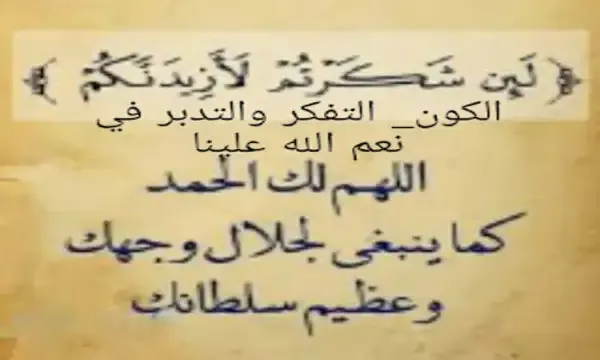 ﴿ لَئِن شَكَرْتُمْ لَأَزِيدَنَّكُمْ ﴾
الكون_ التفكر والتدبر في
نعم الله علينا
اللهم لك الحمد
كما ينبغي لجلال وجهك
وعظيم سلطانك